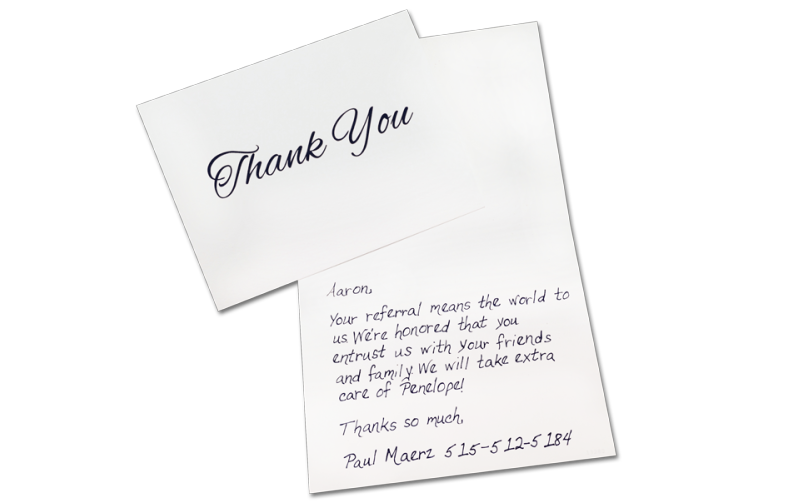 Thank You
Aaron,
Your referral means the world to
us. We're honored that you
entrust us with your friends
and family. We will take extra
care of Penelope!
Thanks so much,
Paul Maerz 515-512-5184